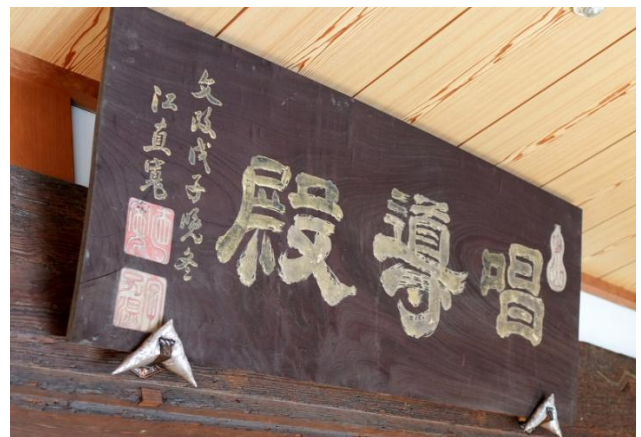 唱導殿
文政戊子晩冬
江直寛